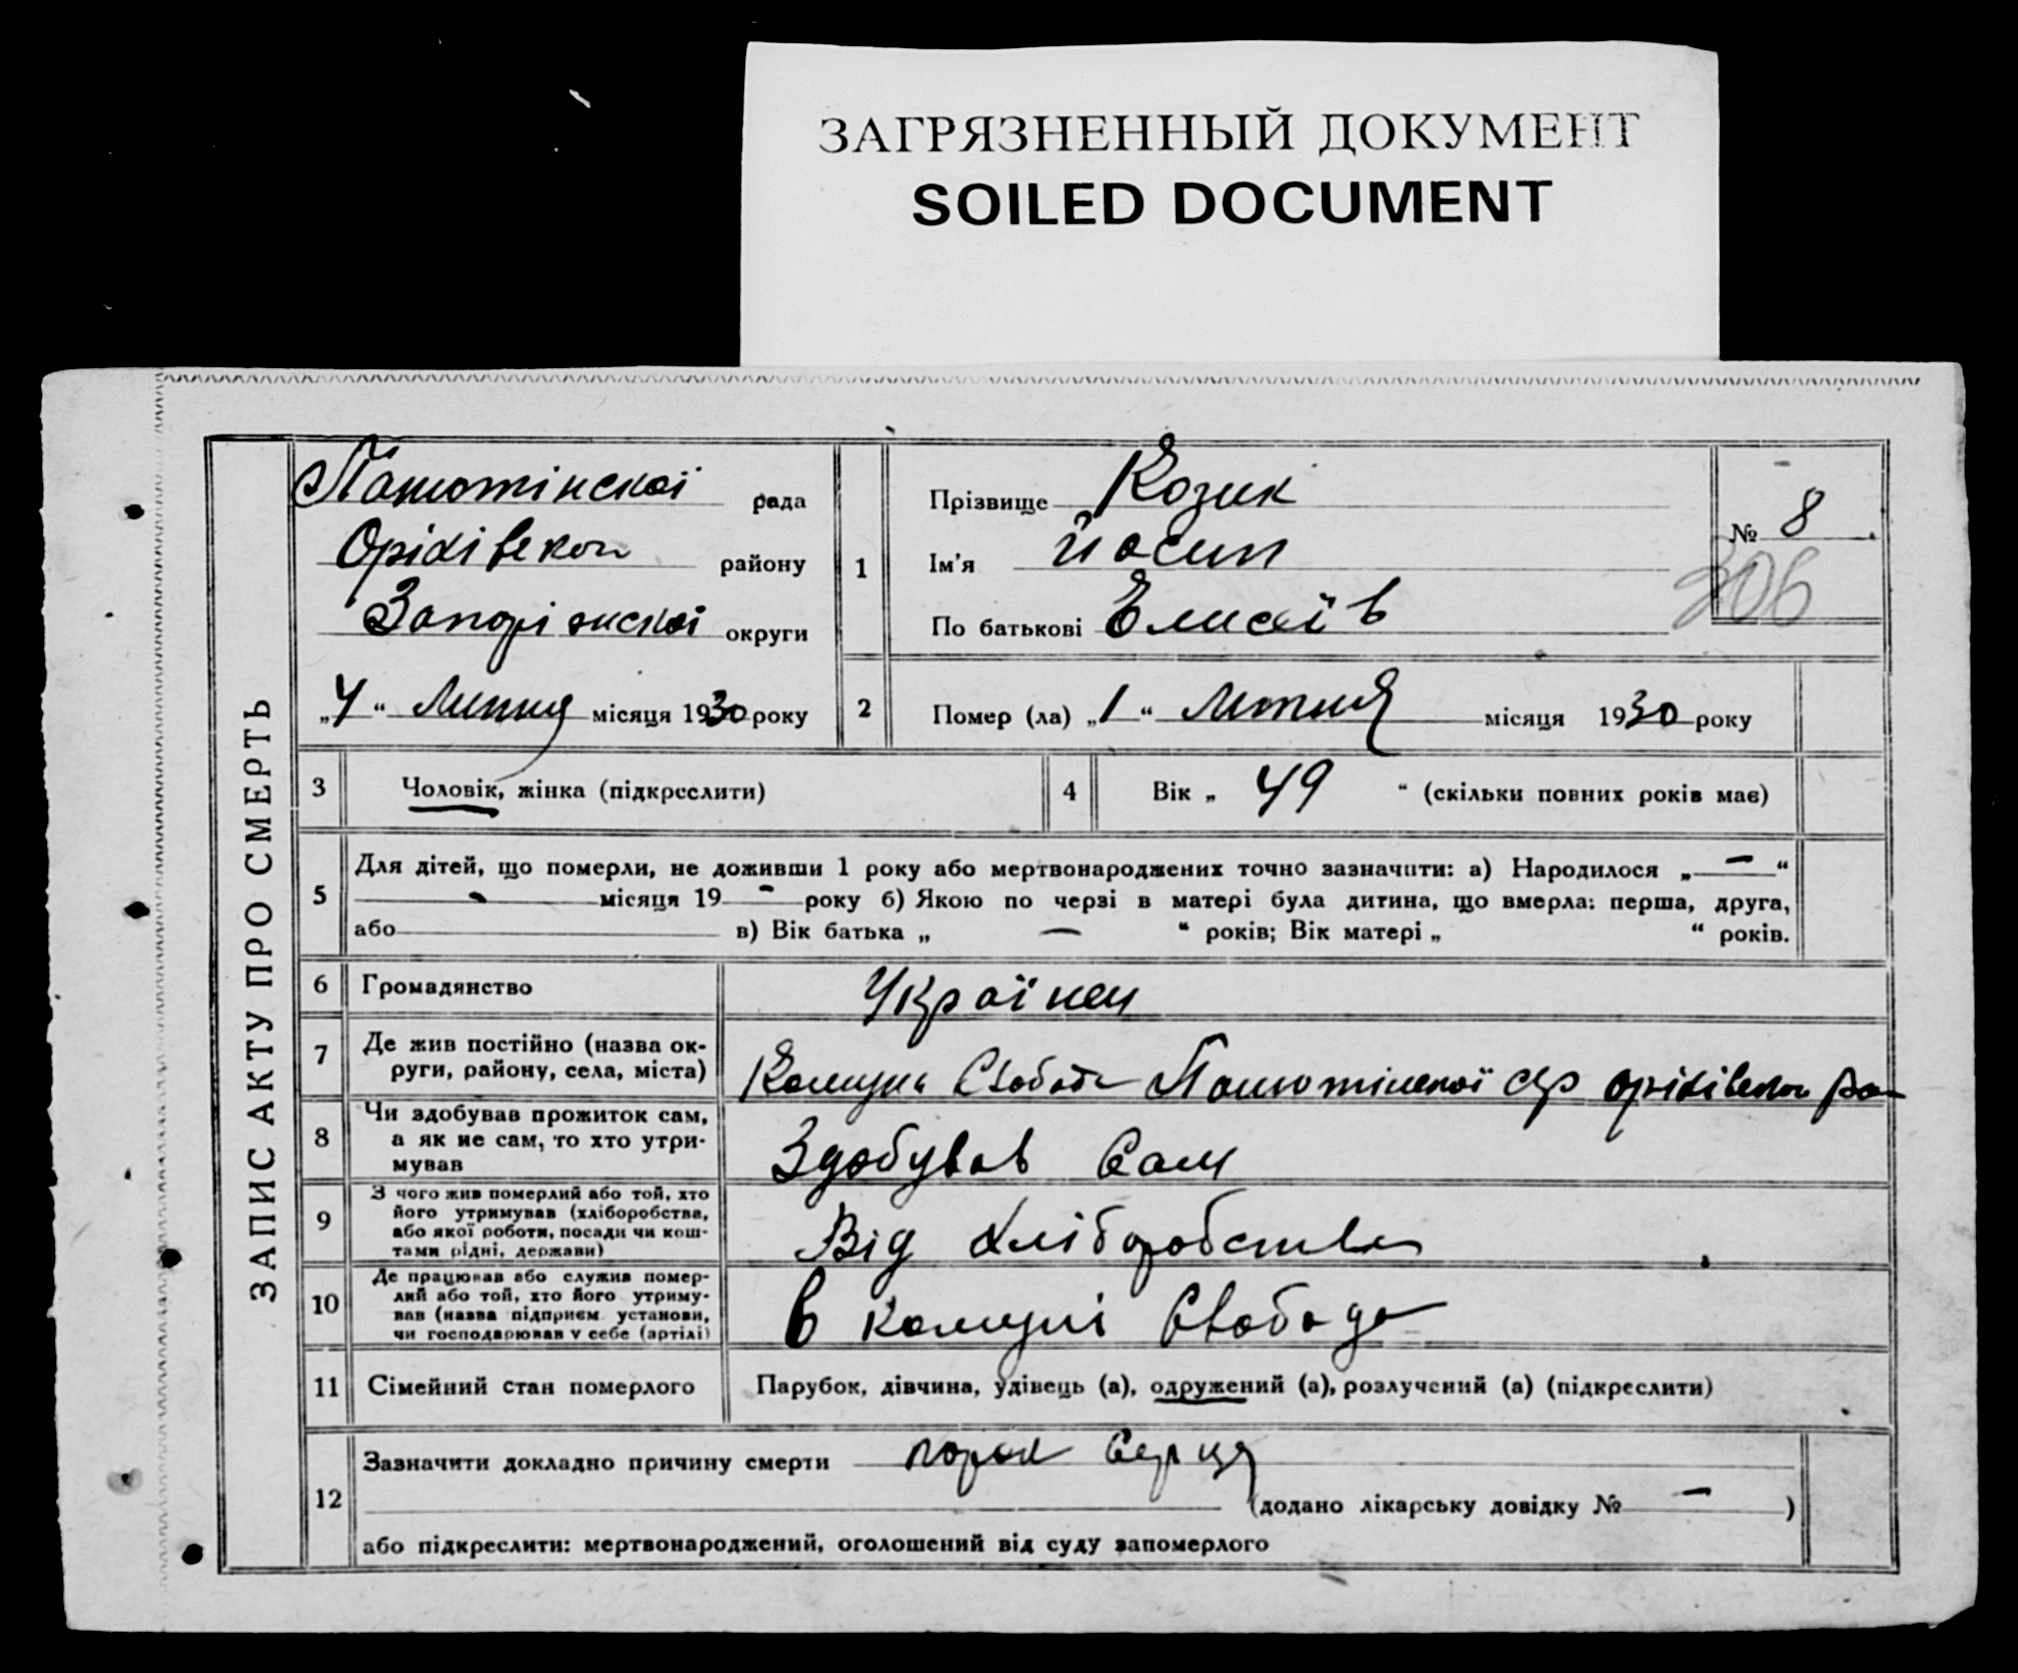 ЗАГРЯЗНЕННЫЙ ДОКУМЕНТ
SOILED DOCUMENT
ЗАПИС АКТУ ПРО СМЕРТЬ
рада
Оріхівськ району
Запоріжської округи
„4“ Липня місяця 1930 року
1
Прізвище Козик
Ім'я Йосип
По батькові Елисеїв
№ 8
306
2
Помер (ла) „1“ Липня місяця 1930 року
3 Чоловік, жінка (підкреслити)
4 Вік „ 49 “ (скільки повних років має)
5 Для дітей, що померли, не доживши 1 року або мертвонароджених точно зазначити: а) Народилося „—“
- місяця 19 - року б) Якою по черзі в матері була дитина, що вмерла: перша, друга,
або в) Вік батька „ — “ років; Вік матері „ “ років.
6 Громадянство Українец
7 Де жив постійно (назва ок-
руги, району, села, міста) Комуна Свобода с/р ра
8 Чи здобував прожиток сам,
а як не сам, то хто утри-
мував Здобував Сам
9 З чого жив померлий або той, хто
його утримував (хліборобства,
або якої роботи, посади чи кош-
тами рідні, держави) Від Хліборобства
10 Де працював або служив помер-
лий або той, хто його утриму-
вав (назва підприєм. установи,
чи господарював у себе (артілі) В комуні Свобода
11 Сімейний стан померлого Парубок, дівчина, удівець (а), одружений (а), розлучений (а) (підкреслити)
12 Зазначити докладно причину смерти порок Серця
(додано лікарську довідку № — )
або підкреслити: мертвонароджений, оголошений від суду запомерлого